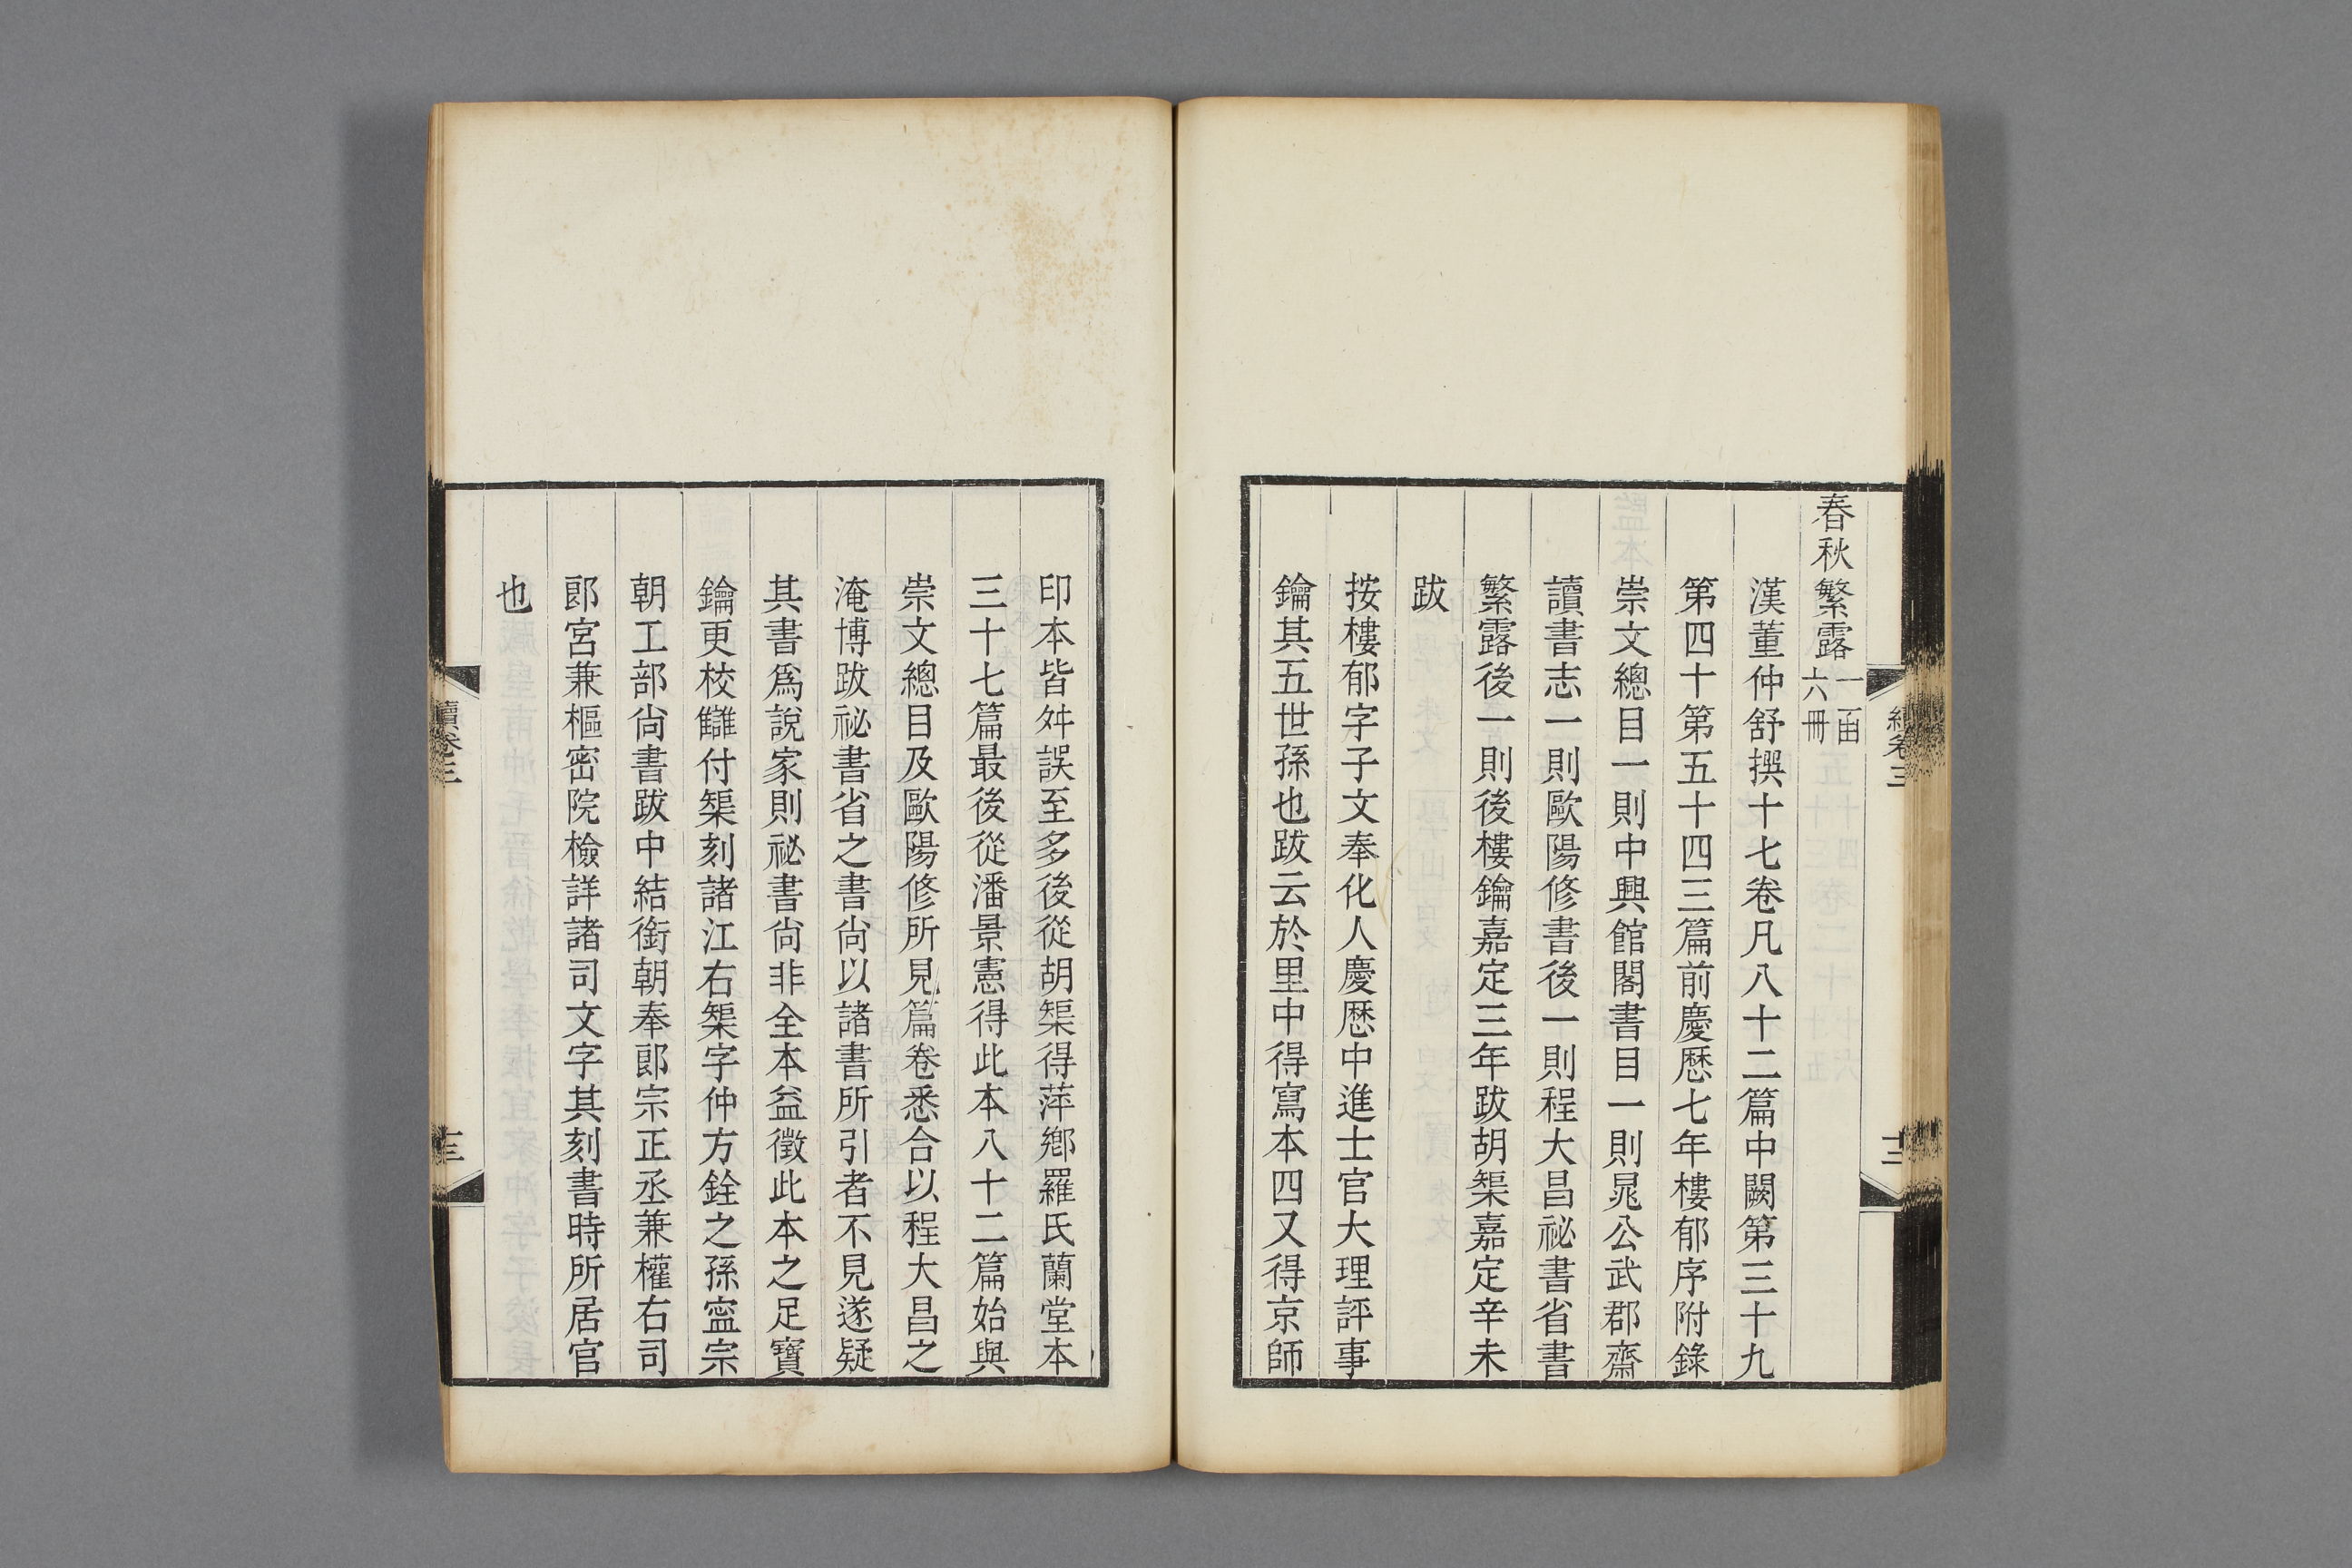 春秋繁露一函六冊
漢董仲舒撰十七卷凡八十二篇中闕第三十九
第四十第五十四三篇前慶厯七年樓郁序附錄
崇文總目一則中興館閣書目一則晁公武郡齋
讀書志一則歐陽修書後一則程大昌祕書省書
繁露後一則後樓鑰嘉定三年跋胡榘嘉定辛未
跋
按樓郁字子文奉化人慶厯中進士官大理評事
鑰其五世孫也跋云於里中得寫本四又得京師
印本皆舛誤至多後從胡榘得萍鄉羅氏蘭堂本
三十七篇最後從潘景憲得此本八十二篇始與
崇文總目及歐陽修所見篇卷悉合以程大昌之
淹博跋祕書省之書尙以諸書所引者不見遂疑
其書爲說家則祕書尙非全本益徵此本之足寶
鑰更校讎付榘刻諸江右榘字仲方銓之孫寍宗
朝工部尙書跋中結銜朝奉郎宗正丞兼權右司
郎宮兼樞密院檢詳諸司文字其刻書時所居官
也
續卷三
十三